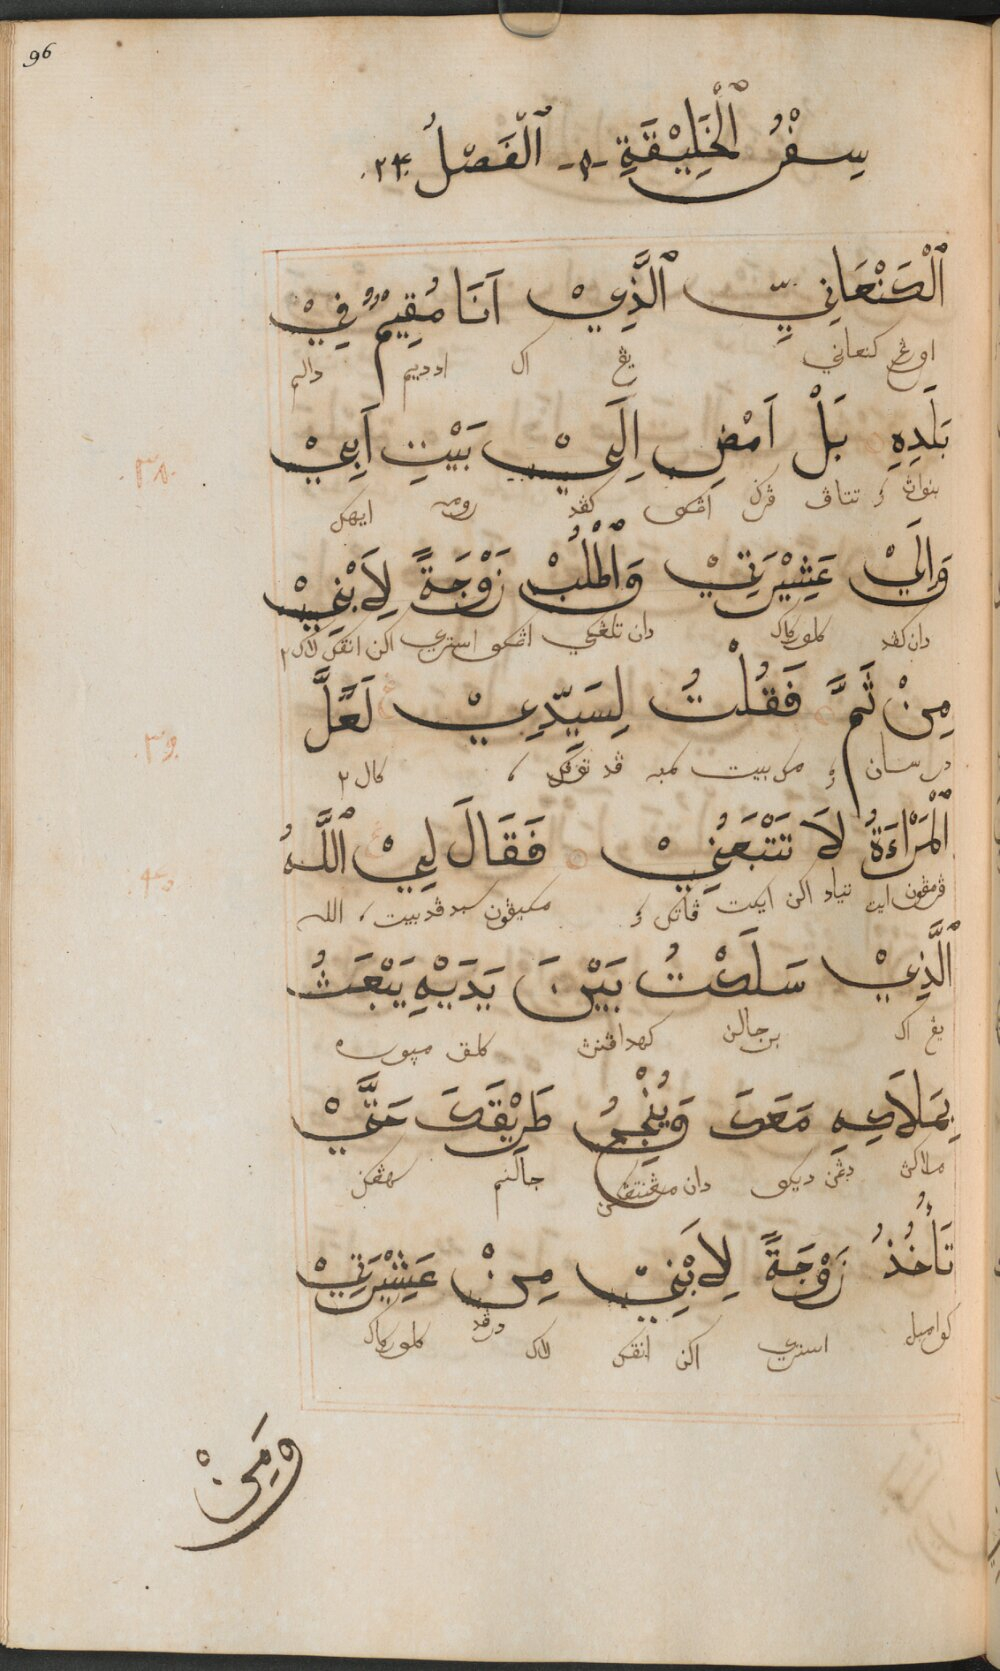 96
سِفْرُ ٱلْخَلِيْقَةِ -۴- ٱلْفَصْلُ ٢۴.
ٱلْكَنْعَانِيِّ ٱلَّذِيْ اَنَا مُقِيْمٌ فِيْ
اورڠ كنعاني يڠ اك اددیم دالم
بَلَدِهِ بَلْ اَمْضِ اِلَيْ بَيْتِ اَبِيْ
بنواڽ تتاڤ ڤرݢ اڠكو كڤد رومه ايهك
.٣٨.
وَاِلَيْ عَشِيْرَتِيْ وَاطْلُبْ زَوْجَةً لِاَبْنِيْ
دان كڤد كلورݢاك دان تلڠكي اڠكو استري اكن انقك لاك٢
مِنْ ثَمَّ فَقُلْتُ لِسَيِّدِيْ لَعَلَّ
در سان مك بيت كمبه ڤد توانك كال٢
.٣٩.
ٱلْمَرْاَءَةُ لَا تَتْبَعُنِيْ فَقَالَ لِيْ ٱللَّهُ
ڤرمڤون اين تياد اكن ايكت ڤاتك مكيڤون سبد ڤد بيت الله
.٤٠.
ٱلَّذِيْ سَلَكْتُ بَيْنَ يَدَيْهِ يَبْعَثُ
يڠ اك برجالن كهداڤنڽ كلق مڽوره
بِمَلَاكِهِ مَعَكَ وَيُنْجِحُ طَرِيْقَكَ حَتَّيْ
ملاكڽ دڠن ديكو دان جالنم سهڠݢ
تَأْخُذُ زَوْجَةً لِاَبْنِيْ مِنْ عَشِيْرَتِيْ
كوامبل استري اكن انقك لاك درڤد كلورݢاك
وَمِنْ